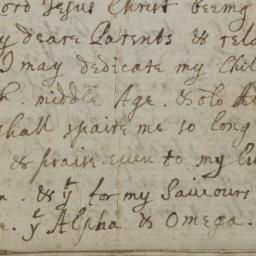 ord Jesus Christ beeing
y deare Parents & rela
I may dedicate my Chil
h. middle Age. & old
shall spaire me so long
& praise euen to my
n. & yt for my Sauiours
e. ye Alpha & Omega.